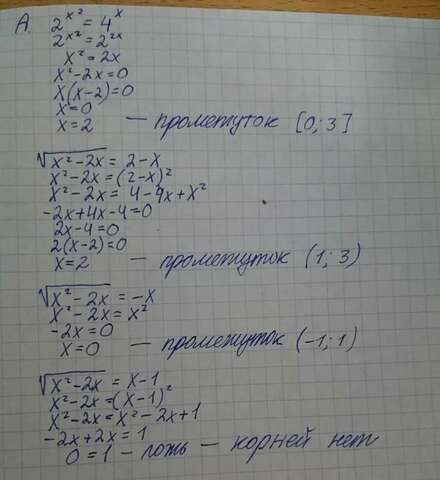 А. 2^{x^2} = 4^x
2^{x^2} = 2^{2x}
x^2 = 2x
x^2 - 2x = 0
x(x-2) = 0
x = 0
x = 2 — промежуток [0; 3]
√(x^2-2x) = 2-x
x^2-2x = (2-x)^2
x^2-2x = 4-4x+x^2
-2x+4x-4=0
2x-4=0
2(x-2)=0
x=2 — промежуток (1; 3)
√(x^2-2x) = -x
x^2-2x = x^2
-2x=0
x=0 — промежуток (-1; 1)
√(x^2-2x) = x-1
x^2-2x = (x-1)^2
x^2-2x = x^2-2x+1
-2x+2x=1
0=1 — ложь — корней нет